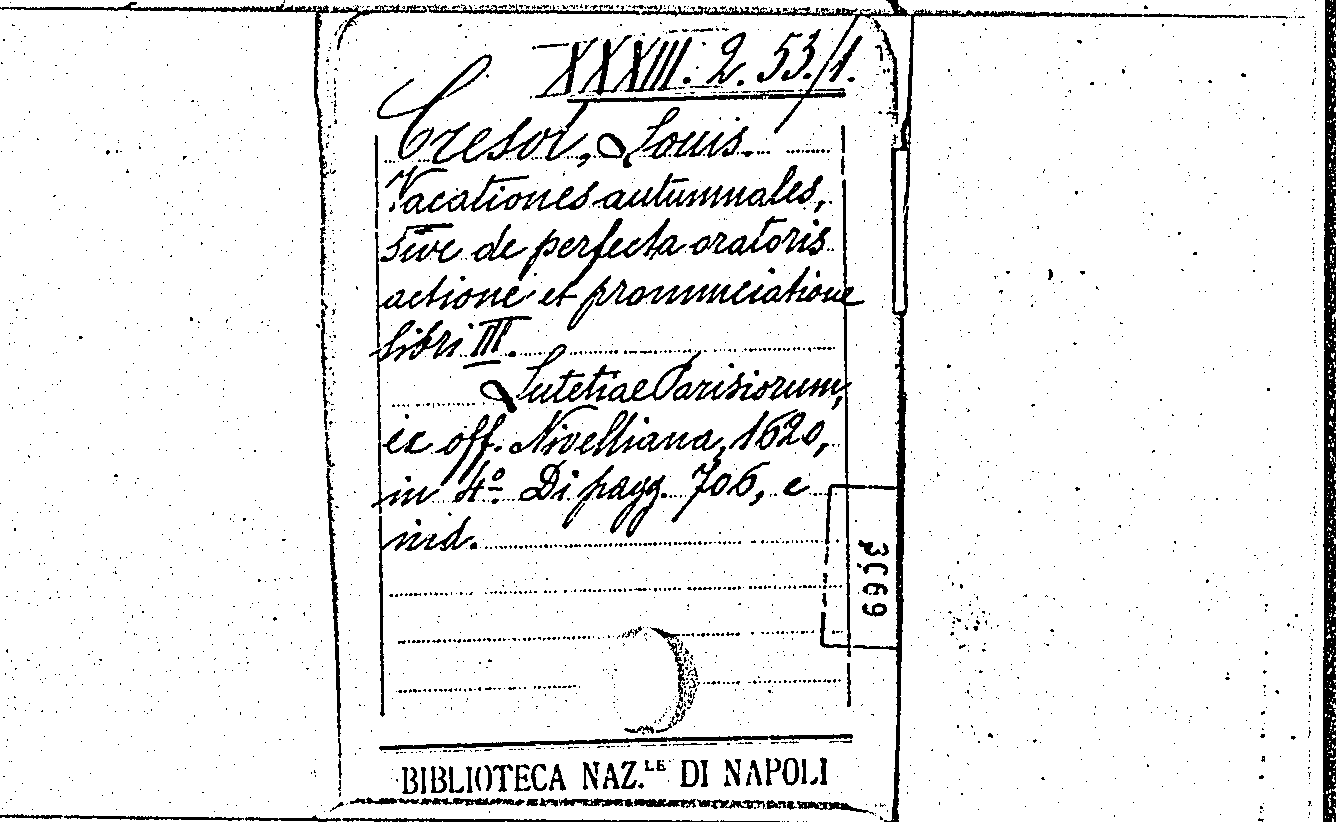 XXXIII. 2. 53./1.
Cresol, Louis.
Vacationes autumnales,
sive de perfecta oratoris
actione et pronunciatione
libri III.
Lutetiae Parisiorum,
ex off. Nivelliana, 1620,
in 4º. Di pagg. 706, e
ind.
BIBLIOTECA NAZ.LE DI NAPOLI